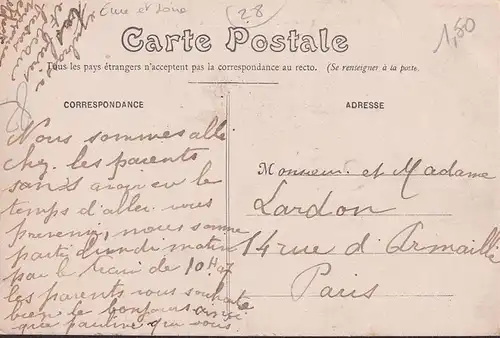 Eure et Loire
28
1,50
Carte Postale
Tous les pays étrangers n'acceptent pas la correspondance au recto. (Se renseigner à la poste
CORRESPONDANCE
ADRESSE
Nous sommes allé
chez les parents
sans avoir eu le
temps d'aller vous
prévenir, nous somme
parti lundi matin
par le train de 10H 07
les parents vous souhaite
bien le bonjours ainsi
que pauline qui vous
Monsieur et Madame
Lardon
14 rue d'Armaillé
Paris